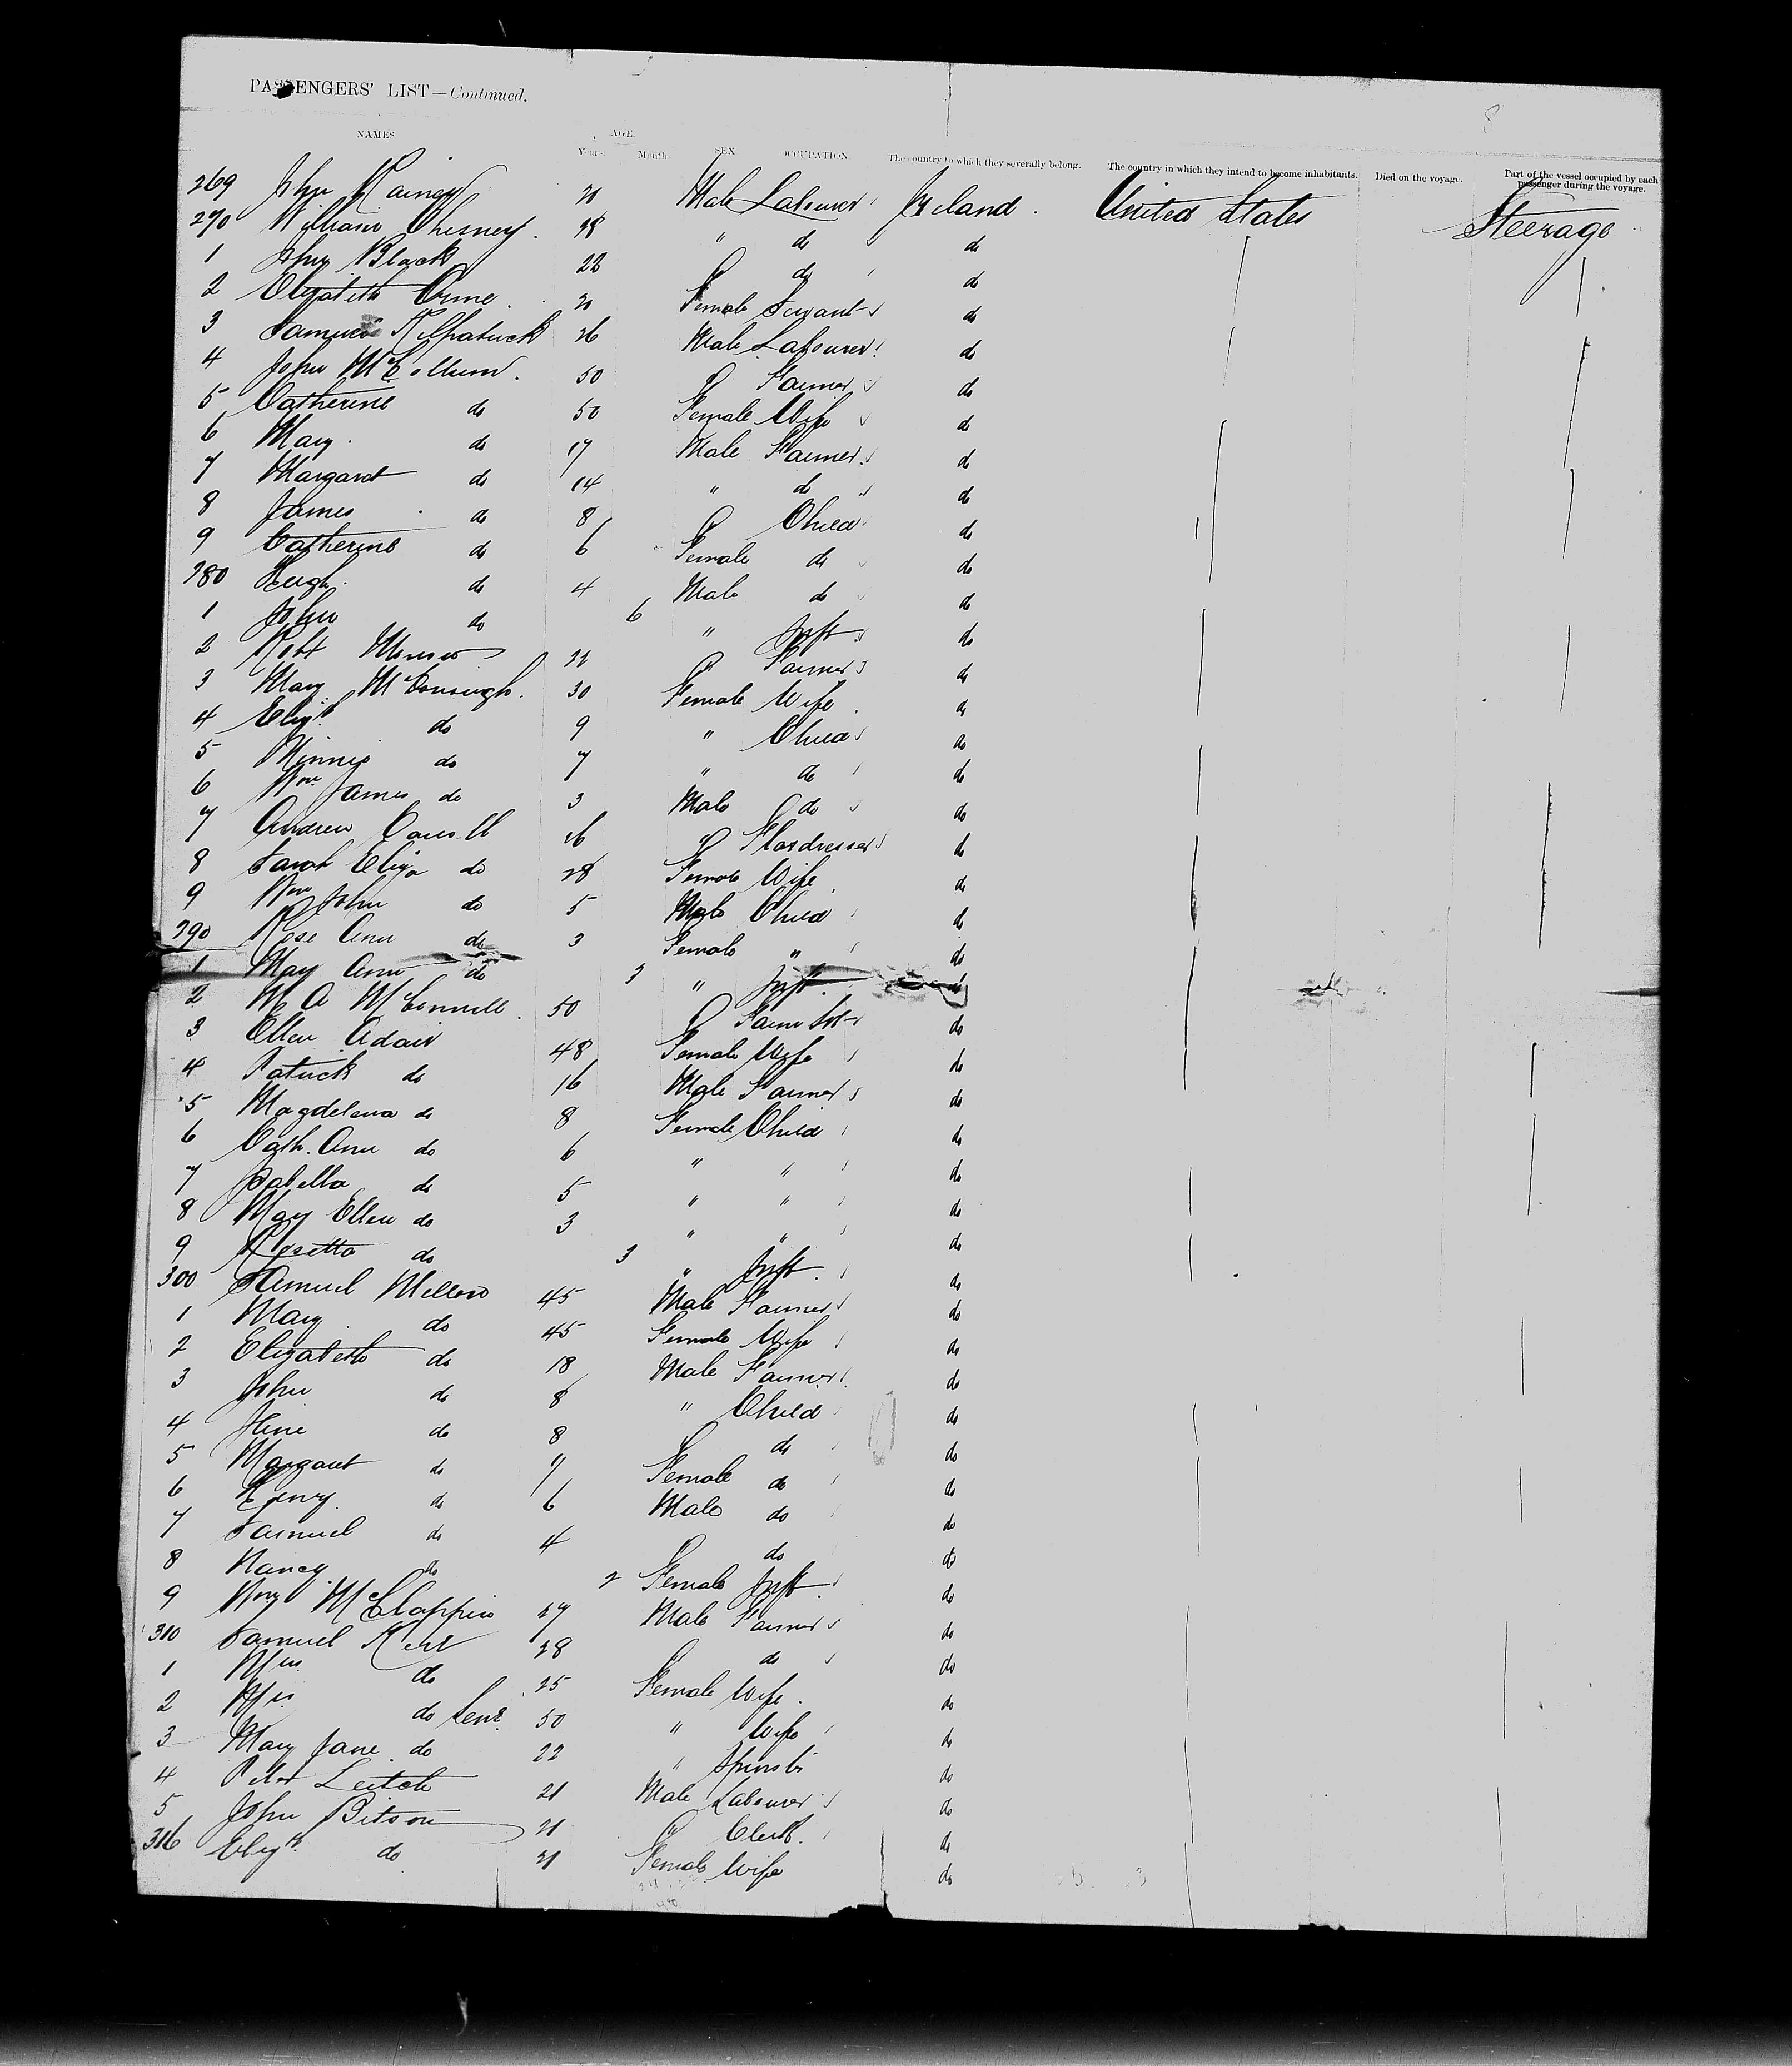 PASSENGERS' LIST—Continued.
8
NAMES AGE. Years. Month. SEX OCCUPATION The country to which they severally belong. The country in which they intend to become inhabitants. Died on the voyage. Part of the vessel occupied by each passenger during the voyage.
269 John Rainey 21 Male Labourer Ireland. United States Steerage
270 William Chesney. 18 " do do
1 John Black 22 do do
2 Elizabeth Orme. 21 Female Servant do
3 Samuel Kilpatrick 26 Male Labourer do
4 John McCollum. 50 Farmer do
5 Catherine do 50 Female Wife do
6 Mary do 17 Male Farmer do
7 Margaret do 14 " do do
8 James do 8 Child do
9 Catherine do 6 Female do do
280 Hugh do 4 Male do do
1 John do 6 " Inft do
2 Robt 22 Farmer do
3 Mary McConough. 30 Female Wife do
4 Elizth do 9 " Child do
5 Minnie do 7 " do do
6 Wm James do 3 Male do do
7 Andrew 26 Flaxdresser do
8 Sarah Eliza do 28 Female Wife do
9 Wm John do 5 Male Child do
290 Rose Ann do 3 Female " do
1 May Ann do 3 " Inft. do
2 M A McConnell. 50 do
3 Ellen Adair 48 Female Wife do
4 Patrick do 16 Male Farmer do
5 Magdelena do 8 Female Child do
6 Cath. Ann do 6 " " do
7 Isabella do 5 " " do
8 May Ellen do 3 " " do
9 Rosetta do 3 " Inft. do
300 Samuel 45 Male Farmer do
1 Mary do 45 Female Wife do
2 Elizabeth do 18 Male Farmer do
3 John do 8 " Child do
4 do 8 do do
5 Margaret do 7 Female do do
6 Henry do 6 Male do do
7 Samuel do 4 do do
8 Nancy do 2 Female Inft do
9 Wm McClappin 27 Male Farmer do
310 Samuel Kerr 28 do do
1 Mrs do 25 Female Wife. do
2 Mrs do Senr. 50 " Wife do
3 Mary Jane do 22 " Spinstr do
4 Peter Leitch 21 Male Labourer do
5 John Bitson 21 " Clerk. do
316 Elizth do 21 Female Wife do